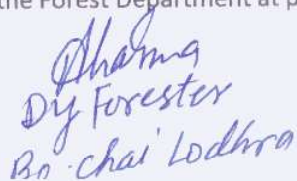 the Forest Department at p
Sharma
Dy Forester
Bo. Chai Lodhra